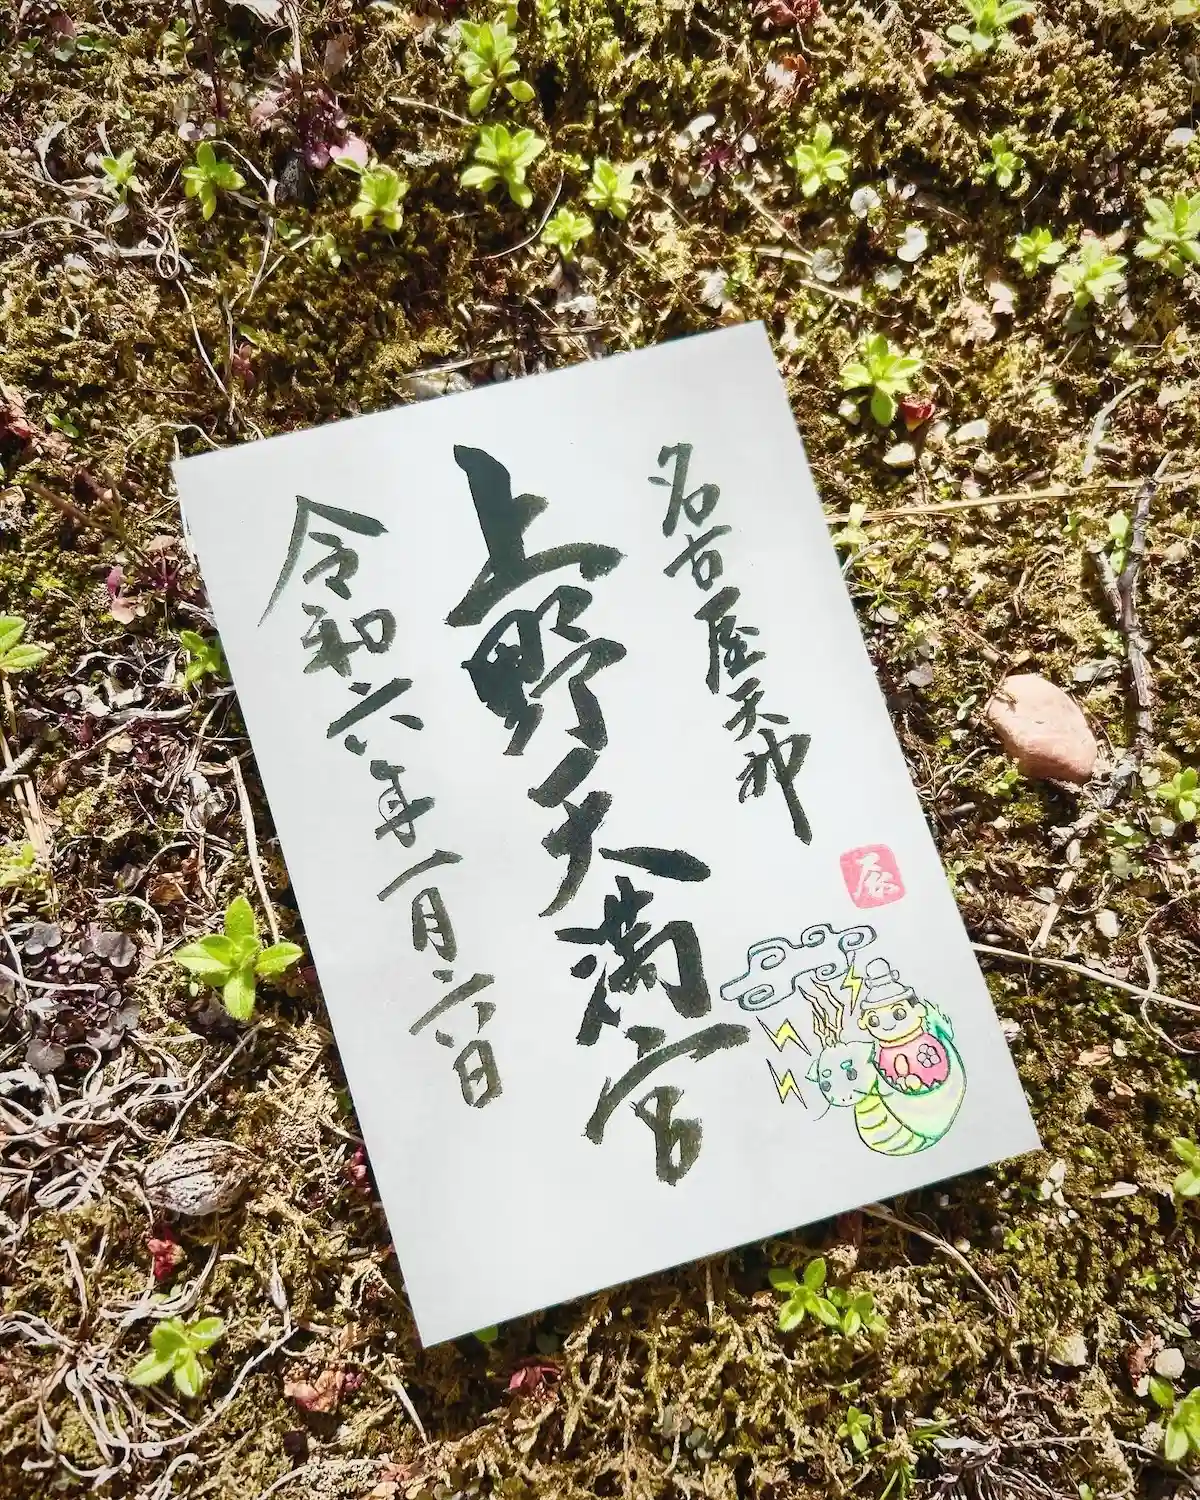 名古屋天神
上野天満宮
令和六年一月六日
辰